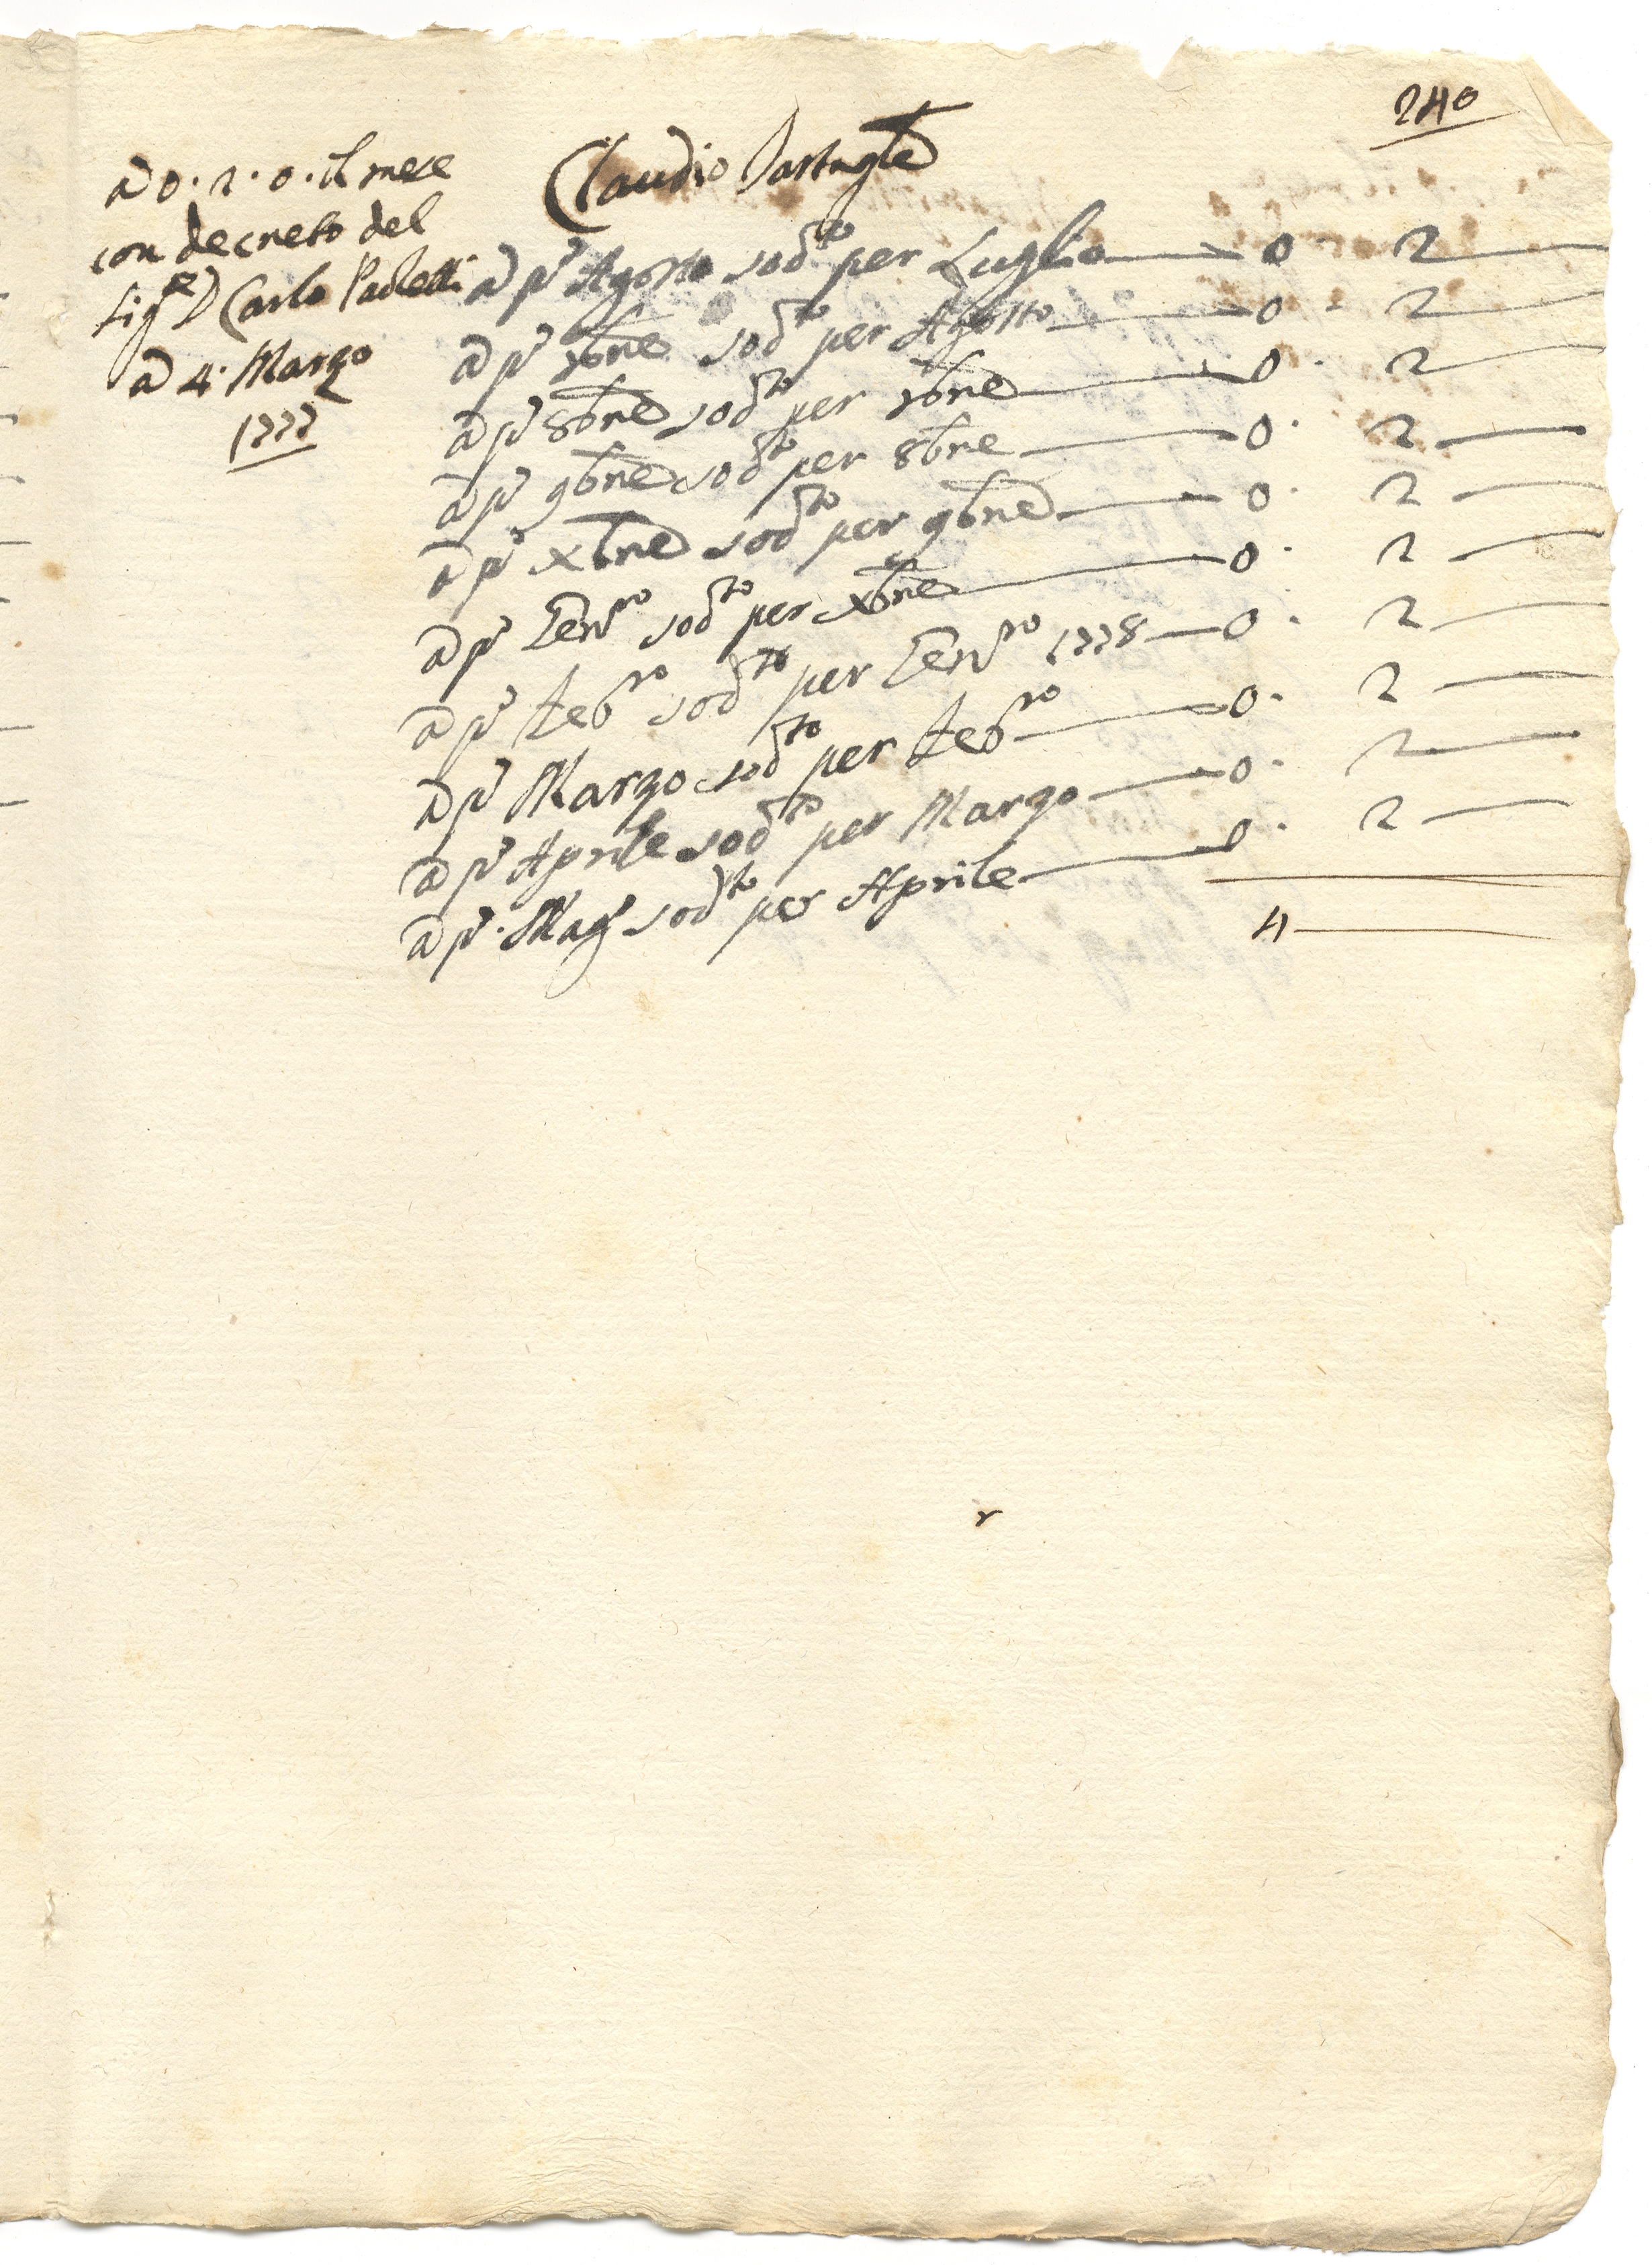 240
Claudio Partagte
a 0.2.0. il mese
con decreto del
Sig.re D Carlo Paoletti
a 4. Marzo
1777
a p.o Agosto sod.to per Luglio — 0 2 —
a p.o 7bre sod.to per Agosto — 0 . 2 —
a p.o 8bre sod.to per 7bre — 0 . 2 —
a p.o 9bre sod.to per 8bre — 0 . 2 —
a p.o Xbre sod.to per 9bre — 0 . 2 —
a p.o Gen.ro sod.to per Xbre — 0 . 2 —
a p.o Feb.ro sod.to per Gen.ro 1778 — 0 . 2 —
a p.o Marzo sod.to per Feb.ro — 0 . 2 —
a p.o Aprile sod.to per Marzo — 0 . 2 —
a p.o Mag.o sod.to per Aprile — 0 . 2 —
4 —